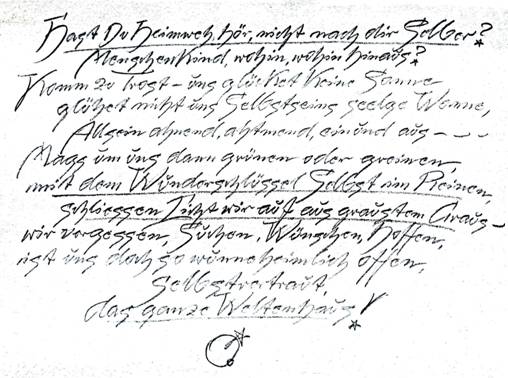 Hast Du Heimweh, hör, nicht nach dir Selber?
Menschenkind, wohin, wohin hinaus?
Komm zu Trost – uns glücket keine Sonne
glühet nicht uns Selbstseins seelge Wonne,
Allsein ahnend, ahtmend, ein und aus –
Mags um uns dann grünen oder greinen,
mit dem Wunderschlüssel Selbst im Reinen,
schliessen Licht wir auf aus graustem Graus –
wir vergessen, Suchen, Wünschen, Hoffen,
ist uns doch so wunneheimlich offen,
Selbstvertraut,
das ganze Weltenhaus!